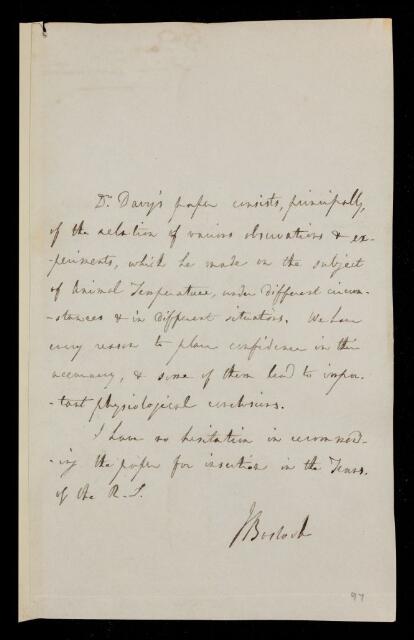 Dr. Davy's paper consists, principally,
of the relation of various observations & ex-
-periments, which he made on the subject
of Animal Temperature, under different circum-
-stances & in different situations. We have
every reason to place confidence in their
accuracy, & some of them lead to impor-
-tant physiological conclusions.
I have no hesitation in recommend-
-ing the paper for insertion in the Trans.
of the R. S.
J Bostock
97